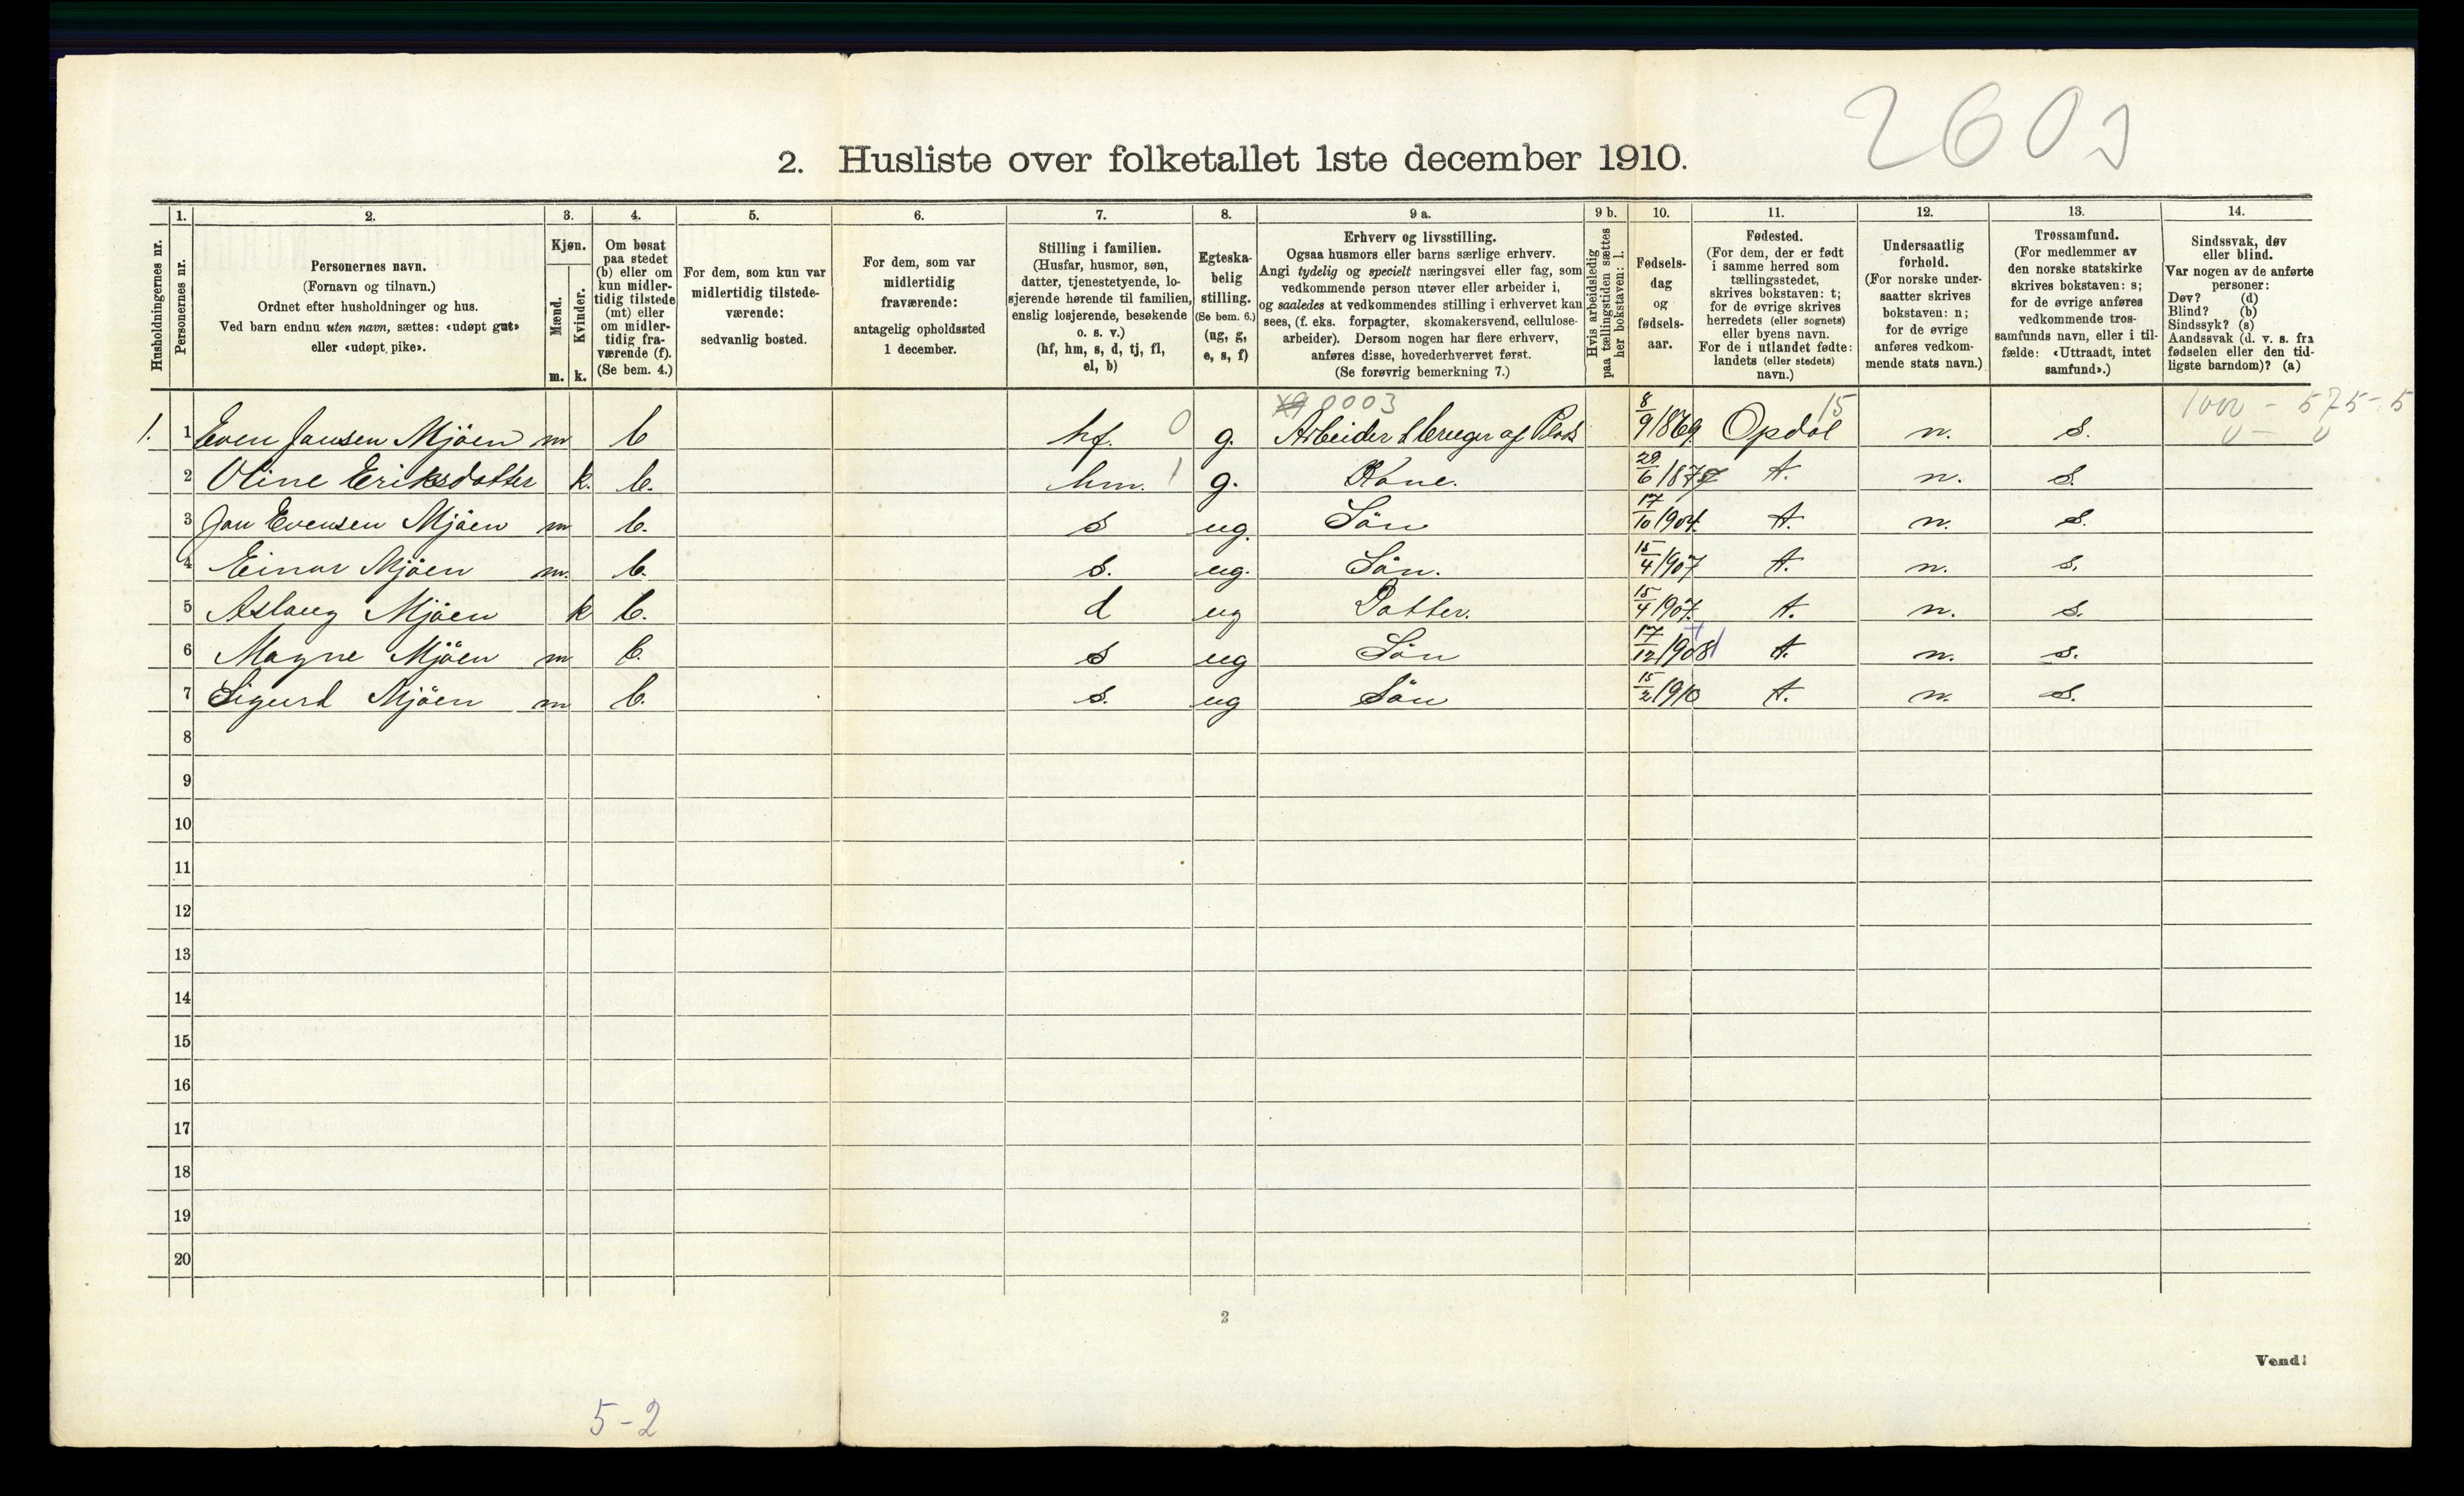 2603
2. Husliste over folketallet 1ste december 1910.
Husholdningernes nr.
1. Personernes nr.
2. Personernes navn. (Fornavn og tilnavn.) Ordnet efter husholdninger og hus. Ved barn endnu uten navn, sættes: «udøpt gut» eller «udøpt pike».
3. Kjøn. Mænd. m. Kvinder. k.
4. Om bosat paa stedet (b) eller om kun midlertidig tilstede (mt) eller om midlertidig fraværende (f). (Se bem. 4.)
5. For dem, som kun var midlertidig tilstedeværende: sedvanlig bosted.
6. For dem, som var midlertidig fraværende: antagelig opholdssted 1 december.
7. Stilling i familien. (Husfar, husmor, søn, datter, tjenestetyende, losjerende hørende til familien, enslig losjerende, besøkende o. s. v.) (hf, hm, s, d, tj, fl, el, b)
8. Egteskabelig stilling. (Se bem. 6.) (ug, g, e, s, f)
9 a. Erhverv og livsstilling. Ogsaa husmors eller barns særlige erhverv. Angi tydelig og specielt næringsvei eller fag, som vedkommende person utøver eller arbeider i, og saaledes at vedkommendes stilling i erhvervet kan sees, (f. eks. forpagter, skomakersvend, cellulosearbeider). Dersom nogen har flere erhverv, anføres disse, hovederhvervet først. (Se forøvrig bemerkning 7.)
9 b. Hvis arbeidsledig paa tællingstiden sættes her bokstaven: l.
10. Fødselsdag og fødselsaar.
11. Fødested. (For dem, der er født i samme herred som tællingsstedet, skrives bokstaven: t; for de øvrige skrives herredets (eller sognets) eller byens navn. For de i utlandet fødte: landets (eller stedets) navn.)
12. Undersaatlig forhold. (For norske undersaatter skrives bokstaven: n; for de øvrige anføres vedkommende stats navn.)
13. Trossamfund. (For medlemmer av den norske statskirke skrives bokstaven: s; for de øvrige anføres vedkommende trossamfunds navn, eller i tilfælde: «Uttraadt, intet samfund».)
14. Sindssvak, døv eller blind. Var nogen av de anførte personer: Døv? (d) Blind? (b) Sindssyk? (s) Aandssvak (d. v. s. fra fødselen eller den tidligste barndom)? (a)
0003 15 1000 - 575-5
1. 1 Even Jansen Mjöen m b hf. 0 g. Arbeider & bruger af Plads 8/9 1869 Opdal n. s. 0 - 0
2 Oline Eriksdatter k. b. hm. 1 g. Kone. 29/6 1877 t. n. s.
3 Jon Evensen Mjöen m b. s ug. Sön 17/10 1904. t. n. s.
4 Einar Mjöen m. b. s. ug. Sön. 15/4 1907 t. n. s.
5 Aslaug Mjöen k b. d ug Datter. 15/4 1907. t. n. s.
6 Magne Mjöen m b. s ug Sön 17/12 1908 t. n. s.
7 Sigurd Mjöen m b. s. ug Sön 15/2 1910 t. n. s.
8
9
10
11
12
13
14
15
16
17
18
19
20
2
Vend!
5-2